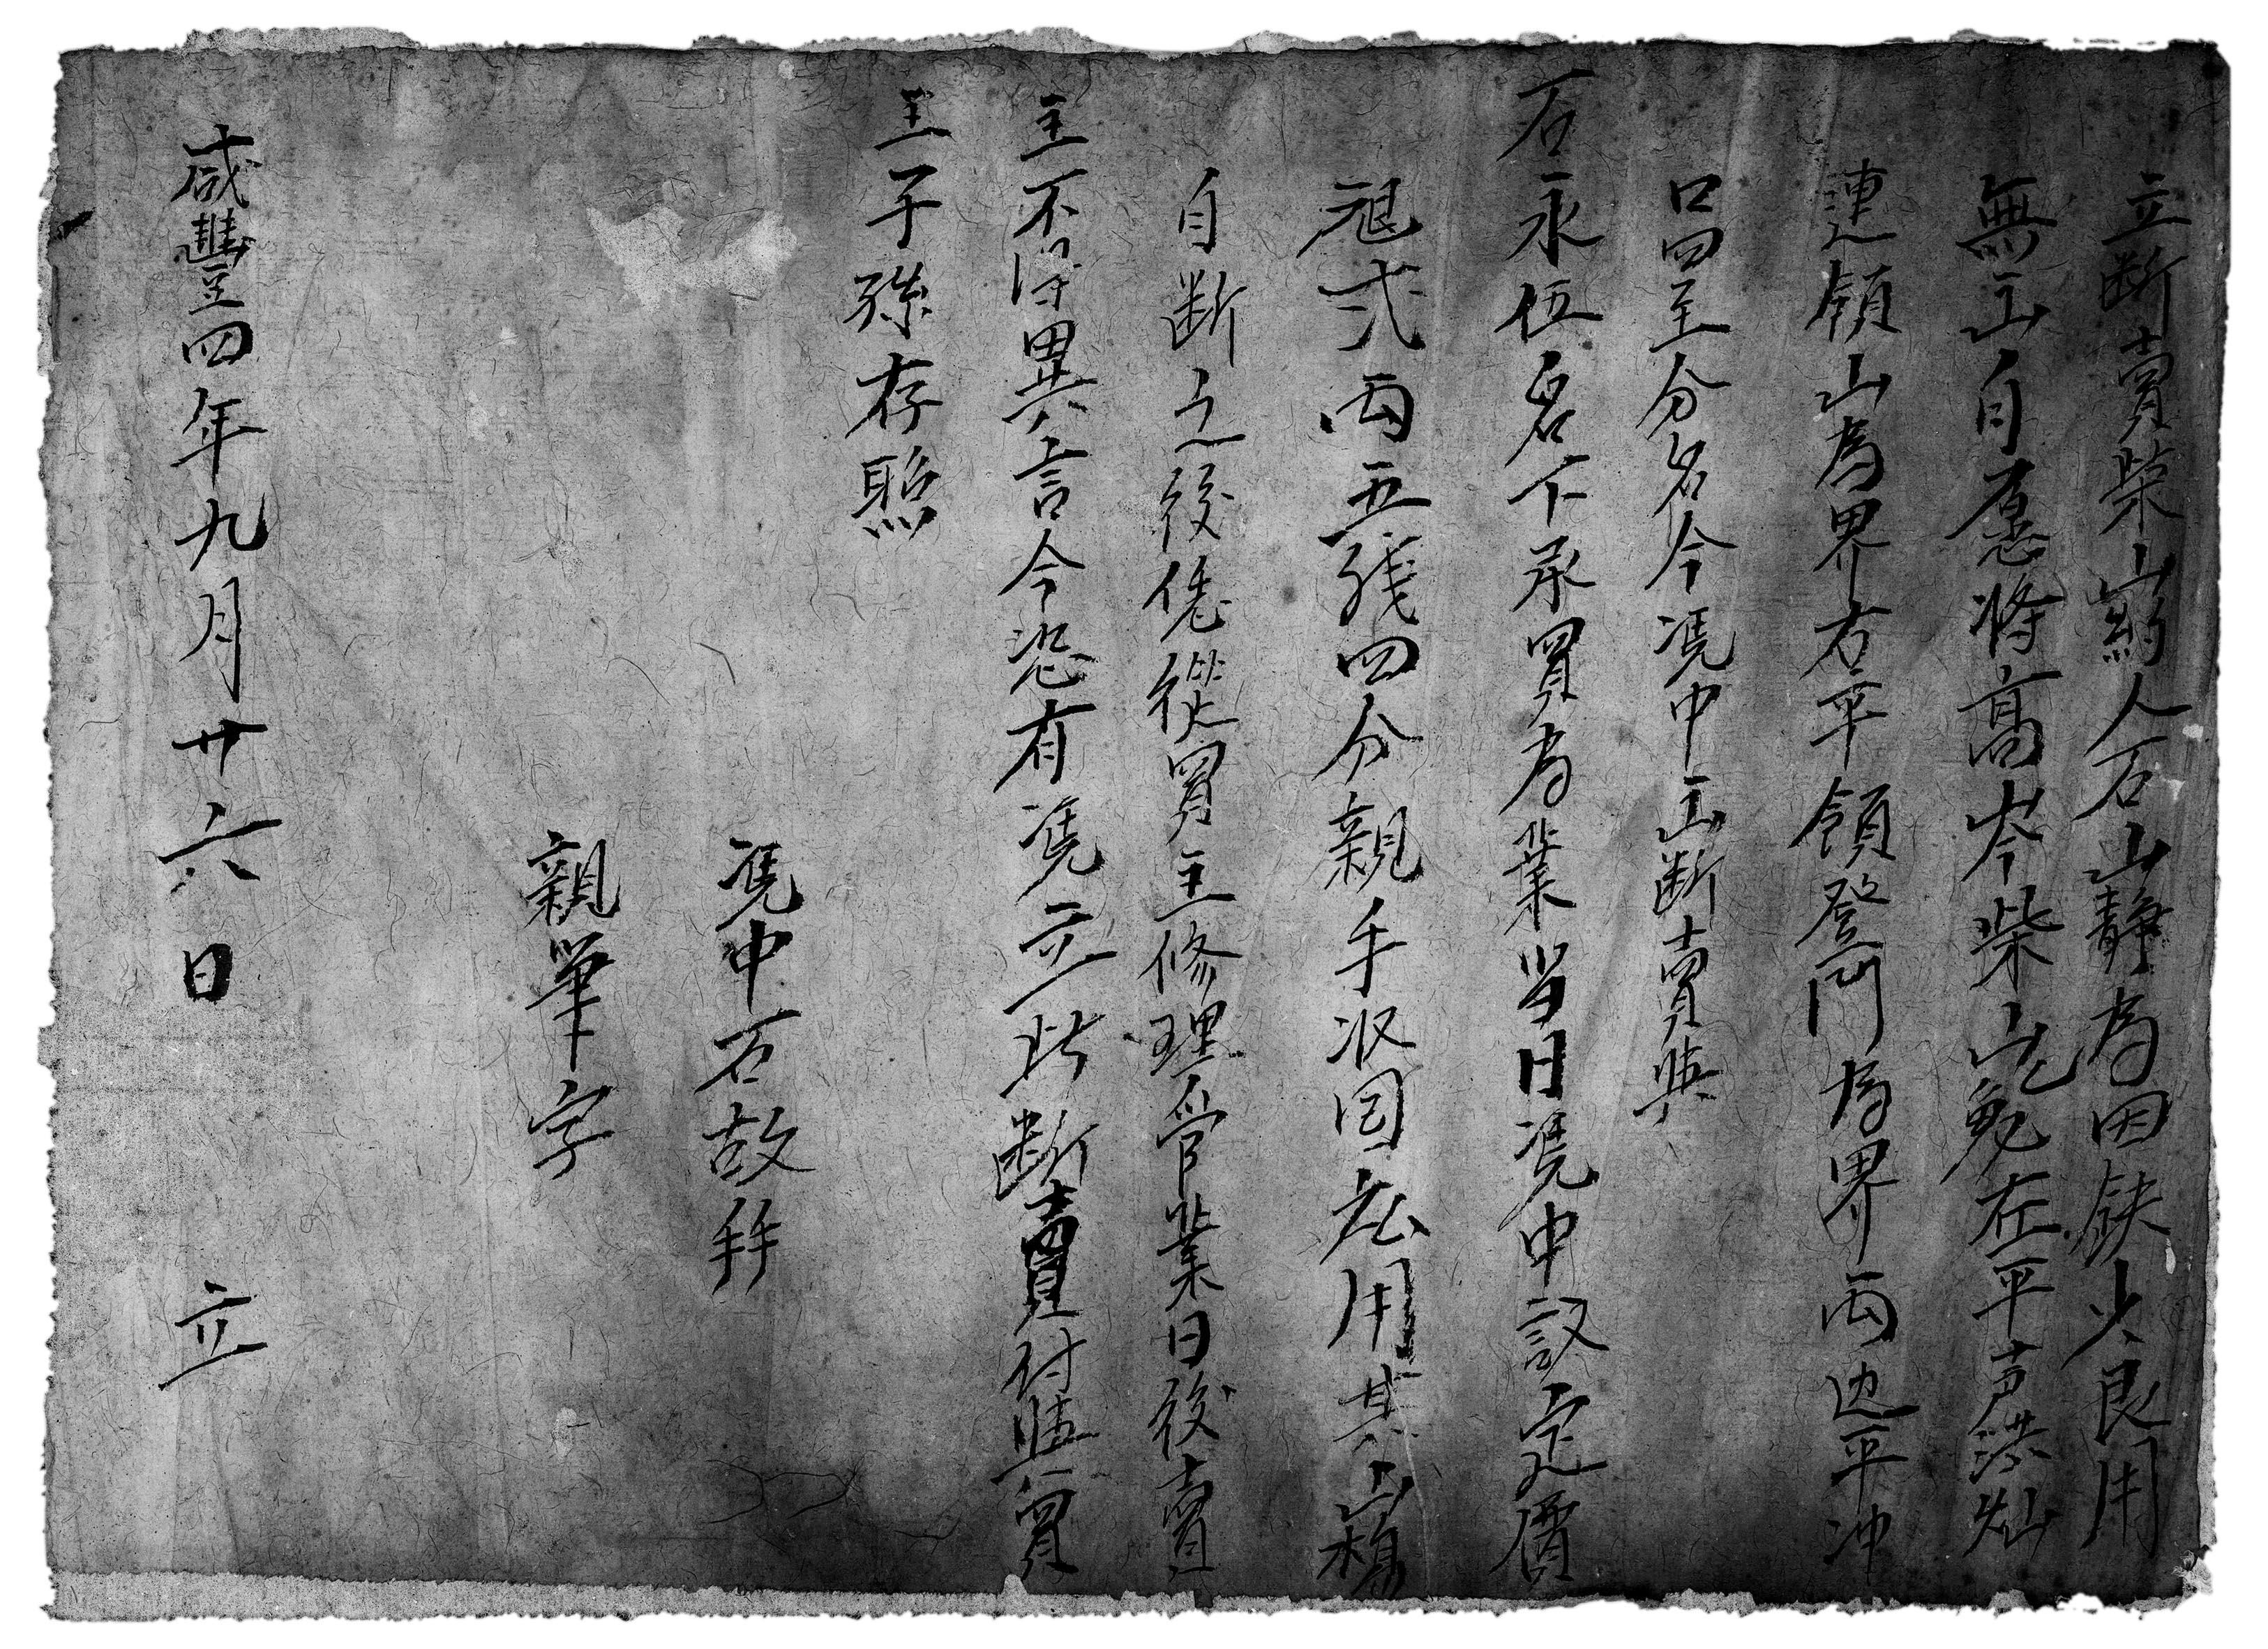 立断賣柴山約人石山静為因缺少良用
無山自愿將高岑柴山免左平声洪灿
連領山為界右平領登門為界两边平冲
口四至分名今凴中山断賣與
石永伍名下承買為業当日凴中議定價
艮弍两五錢四分親手收回应用其山穆
自断之後凭從買主修理管業日後賣
主不得異言今恐有凴立此断賣付與買
主子孫存照
凴中石故拜
親筆字
咸豐四年九月廿六日 立